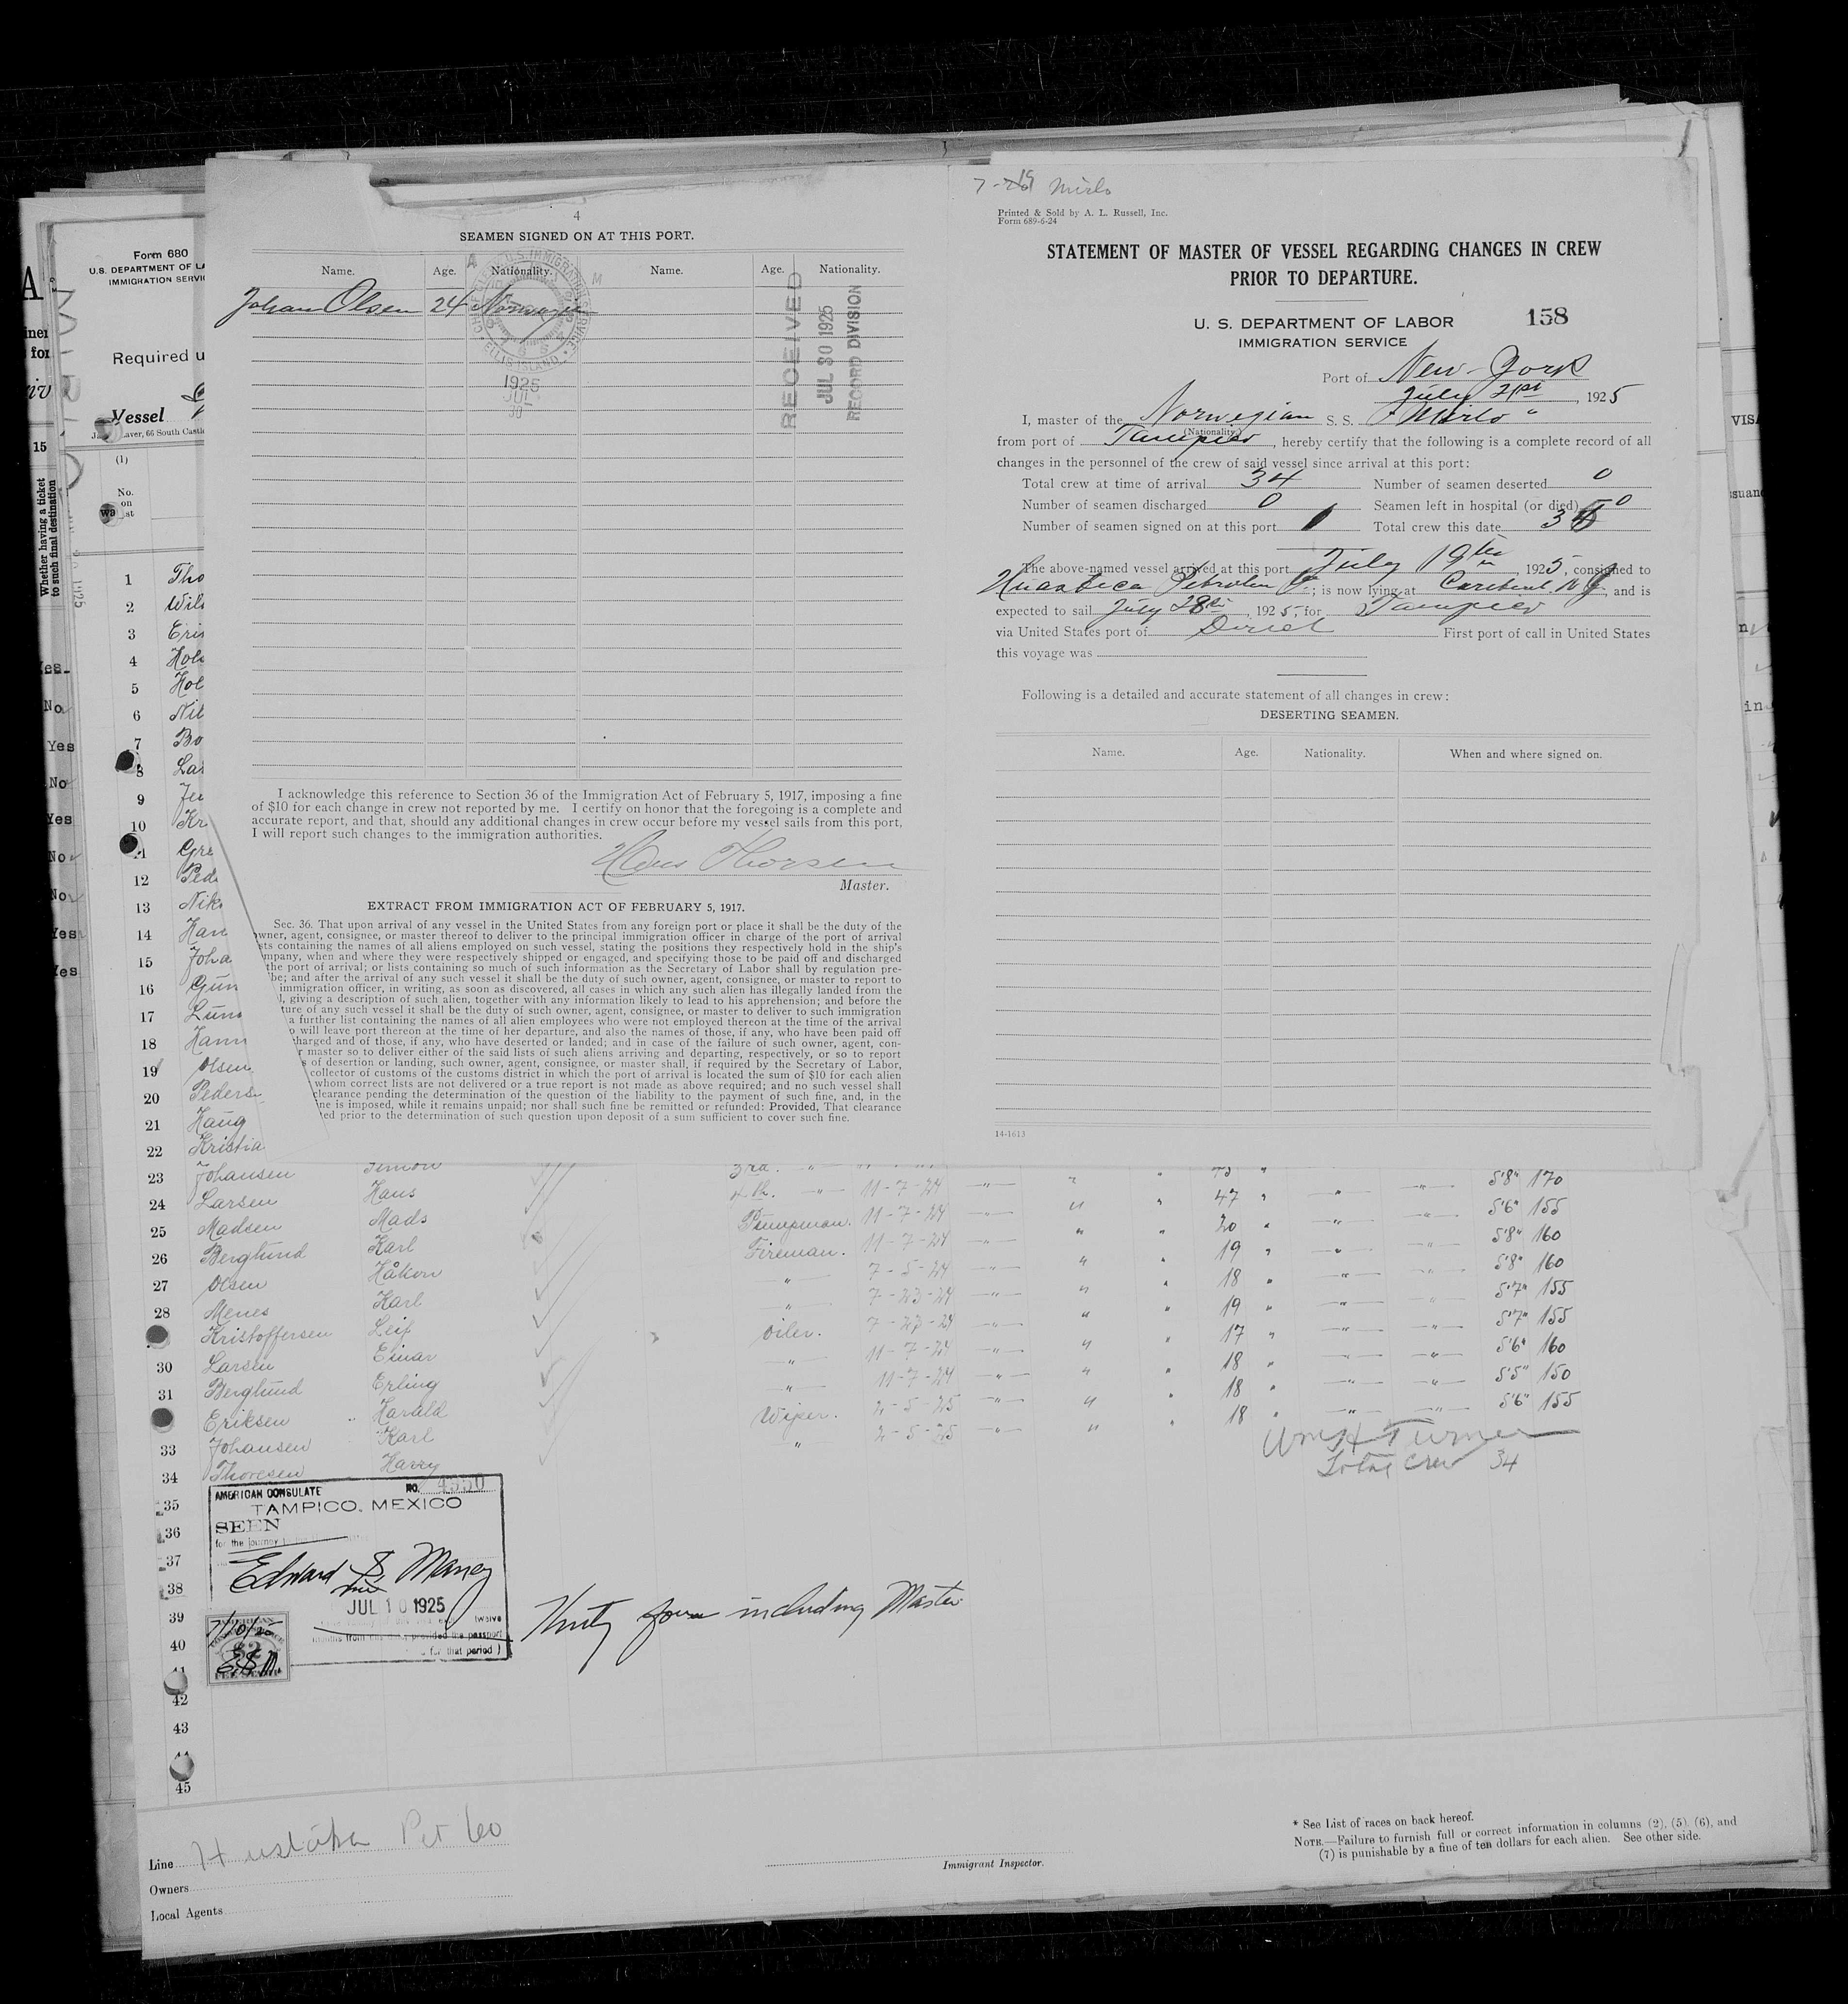 4
SEAMEN SIGNED ON AT THIS PORT.
Name. Age. Nationality. Name. Age. Nationality.
Johan Olsen 24 Norwegian
ELLIS ISLAND
1925
JUL
30
RECEIVED
JUL 30 1925
RECORD DIVISION
I acknowledge this reference to Section 36 of the Immigration Act of February 5, 1917, imposing a fine
of $10 for each change in crew not reported by me. I certify on honor that the foregoing is a complete and
accurate report, and that, should any additional changes in crew occur before my vessel sails from this port,
I will report such changes to the immigration authorities.
Hans Thorsen
Master.
EXTRACT FROM IMMIGRATION ACT OF FEBRUARY 5, 1917.
Sec. 36. That upon arrival of any vessel in the United States from any foreign port or place it shall be the duty of the
owner, agent, consignee, or master thereof to deliver to the principal immigration officer in charge of the port of arrival
sts containing the names of all aliens employed on such vessel, stating the positions they respectively hold in the ship's
mpany, when and where they were respectively shipped or engaged, and specifying those to be paid off and discharged
the port of arrival; or lists containing so much of such information as the Secretary of Labor shall by regulation pre-
be; and after the arrival of any such vessel it shall be the duty of such owner, agent, consignee, or master to report to
immigration officer, in writing, as soon as discovered, all cases in which any such alien has illegally landed from the
l, giving a description of such alien, together with any information likely to lead to his apprehension; and before the
ture of any such vessel it shall be the duty of such owner, agent, consignee, or master to deliver to such immigration
a further list containing the names of all alien employees who were not employed thereon at the time of the arrival
o will leave port thereon at the time of her departure, and also the names of those, if any, who have been paid off
charged and of those, if any, who have deserted or landed; and in case of the failure of such owner, agent, con-
r master so to deliver either of the said lists of such aliens arriving and departing, respectively, or so to report
s of desertion or landing, such owner, agent, consignee, or master shall, if required by the Secretary of Labor,
collector of customs of the customs district in which the port of arrival is located the sum of $10 for each alien
whom correct lists are not delivered or a true report is not made as above required; and no such vessel shall
clearance pending the determination of the question of the liability to the payment of such fine, and, in the
ine is imposed, while it remains unpaid; nor shall such fine be remitted or refunded: Provided, That clearance
ed prior to the determination of such question upon deposit of a sum sufficient to cover such fine.
Mirlo
Printed & Sold by A. L. Russell, Inc.
Form 689-6-24
STATEMENT OF MASTER OF VESSEL REGARDING CHANGES IN CREW
PRIOR TO DEPARTURE.
U. S. DEPARTMENT OF LABOR 158
IMMIGRATION SERVICE
Port of New-York
July 21st, 1925
I, master of the Norwegian S. S. "Mirlo"
(Nationality)
from port of Tampico, hereby certify that the following is a complete record of all
changes in the personnel of the crew of said vessel since arrival at this port:
Total crew at time of arrival 34 Number of seamen deserted 0
Number of seamen discharged 0 Seamen left in hospital (or died) 0
Number of seamen signed on at this port 1 Total crew this date 35
The above-named vessel arrived at this port July 19th, 1925, consigned to
Huasteca Petroleum Co.; is now lying at Carteret. N J. and is
expected to sail July 28th, 1925, for Tampico
via United States port of Direct First port of call in United States
this voyage was
Following is a detailed and accurate statement of all changes in crew:
DESERTING SEAMEN.
Name. Age. Nationality. When and where signed on.
14-1613
Form 680
U.S. DEPARTMENT OF LA
IMMIGRATION SERVIC
Required u
Vessel
aver, 66 South Castl
(1)
No.
on
Whether having a ticket
to such final destination
15
Yes
No
Yes
No
Yes
No
No
Yes
Yes
1 Tho
2 Wil
3 Eri
4 Hol
5 Hol
6 Nil
7 Bo
8 Lar
9 Je
10 Kr
Gre
12 Ped
13 Nik
14 Han
15 Joha
16 Gun
17 Lun
18 Hann
19 Olsen
20 Peders
21 Haug
22 Kristia
23 Johansen Simon 3rd.
24 Larsen Hans 4th. 11-7-24 47 5'8" 170
25 Madsen Mads Pumpman. 11-7-24 20 5'6" 155
26 Berglund Karl Fireman. 11-7-24 19 5'8" 160
27 Olsen Håkon 7-5-24 18 5'8" 160
28 Menes Karl 7-23-24 19 5'7" 155
Kristoffersen Leif Oiler. 7-23-24 17 5'7" 155
30 Larsen Einar 11-7-24 18 5'6" 160
31 Berglund Erling 11-7-24 18 5'5" 150
Eriksen Harald Wiper. 2-5-25 18 5'6" 155
33 Johansen Karl 2-5-25
34 Thoresen Harry
Wm H Turner
Total Crew 34
35
36
37
38
39
40
42
43
45
AMERICAN CONSULATE NO. 4950
TAMPICO, MEXICO
SEEN
for the journey
Edward S. Maney
JUL 10 1925
twelve
provided the passport
for that period )
7/10/25
$2
E.S.M.
Thirty four including Master
Line Hustaka Pet Co
Owners
Local Agents
Immigrant Inspector.
* See List of races on back hereof.
NOTE.—Failure to furnish full or correct information in columns (2), (5), (6), and
(7) is punishable by a fine of ten dollars for each alien. See other side.